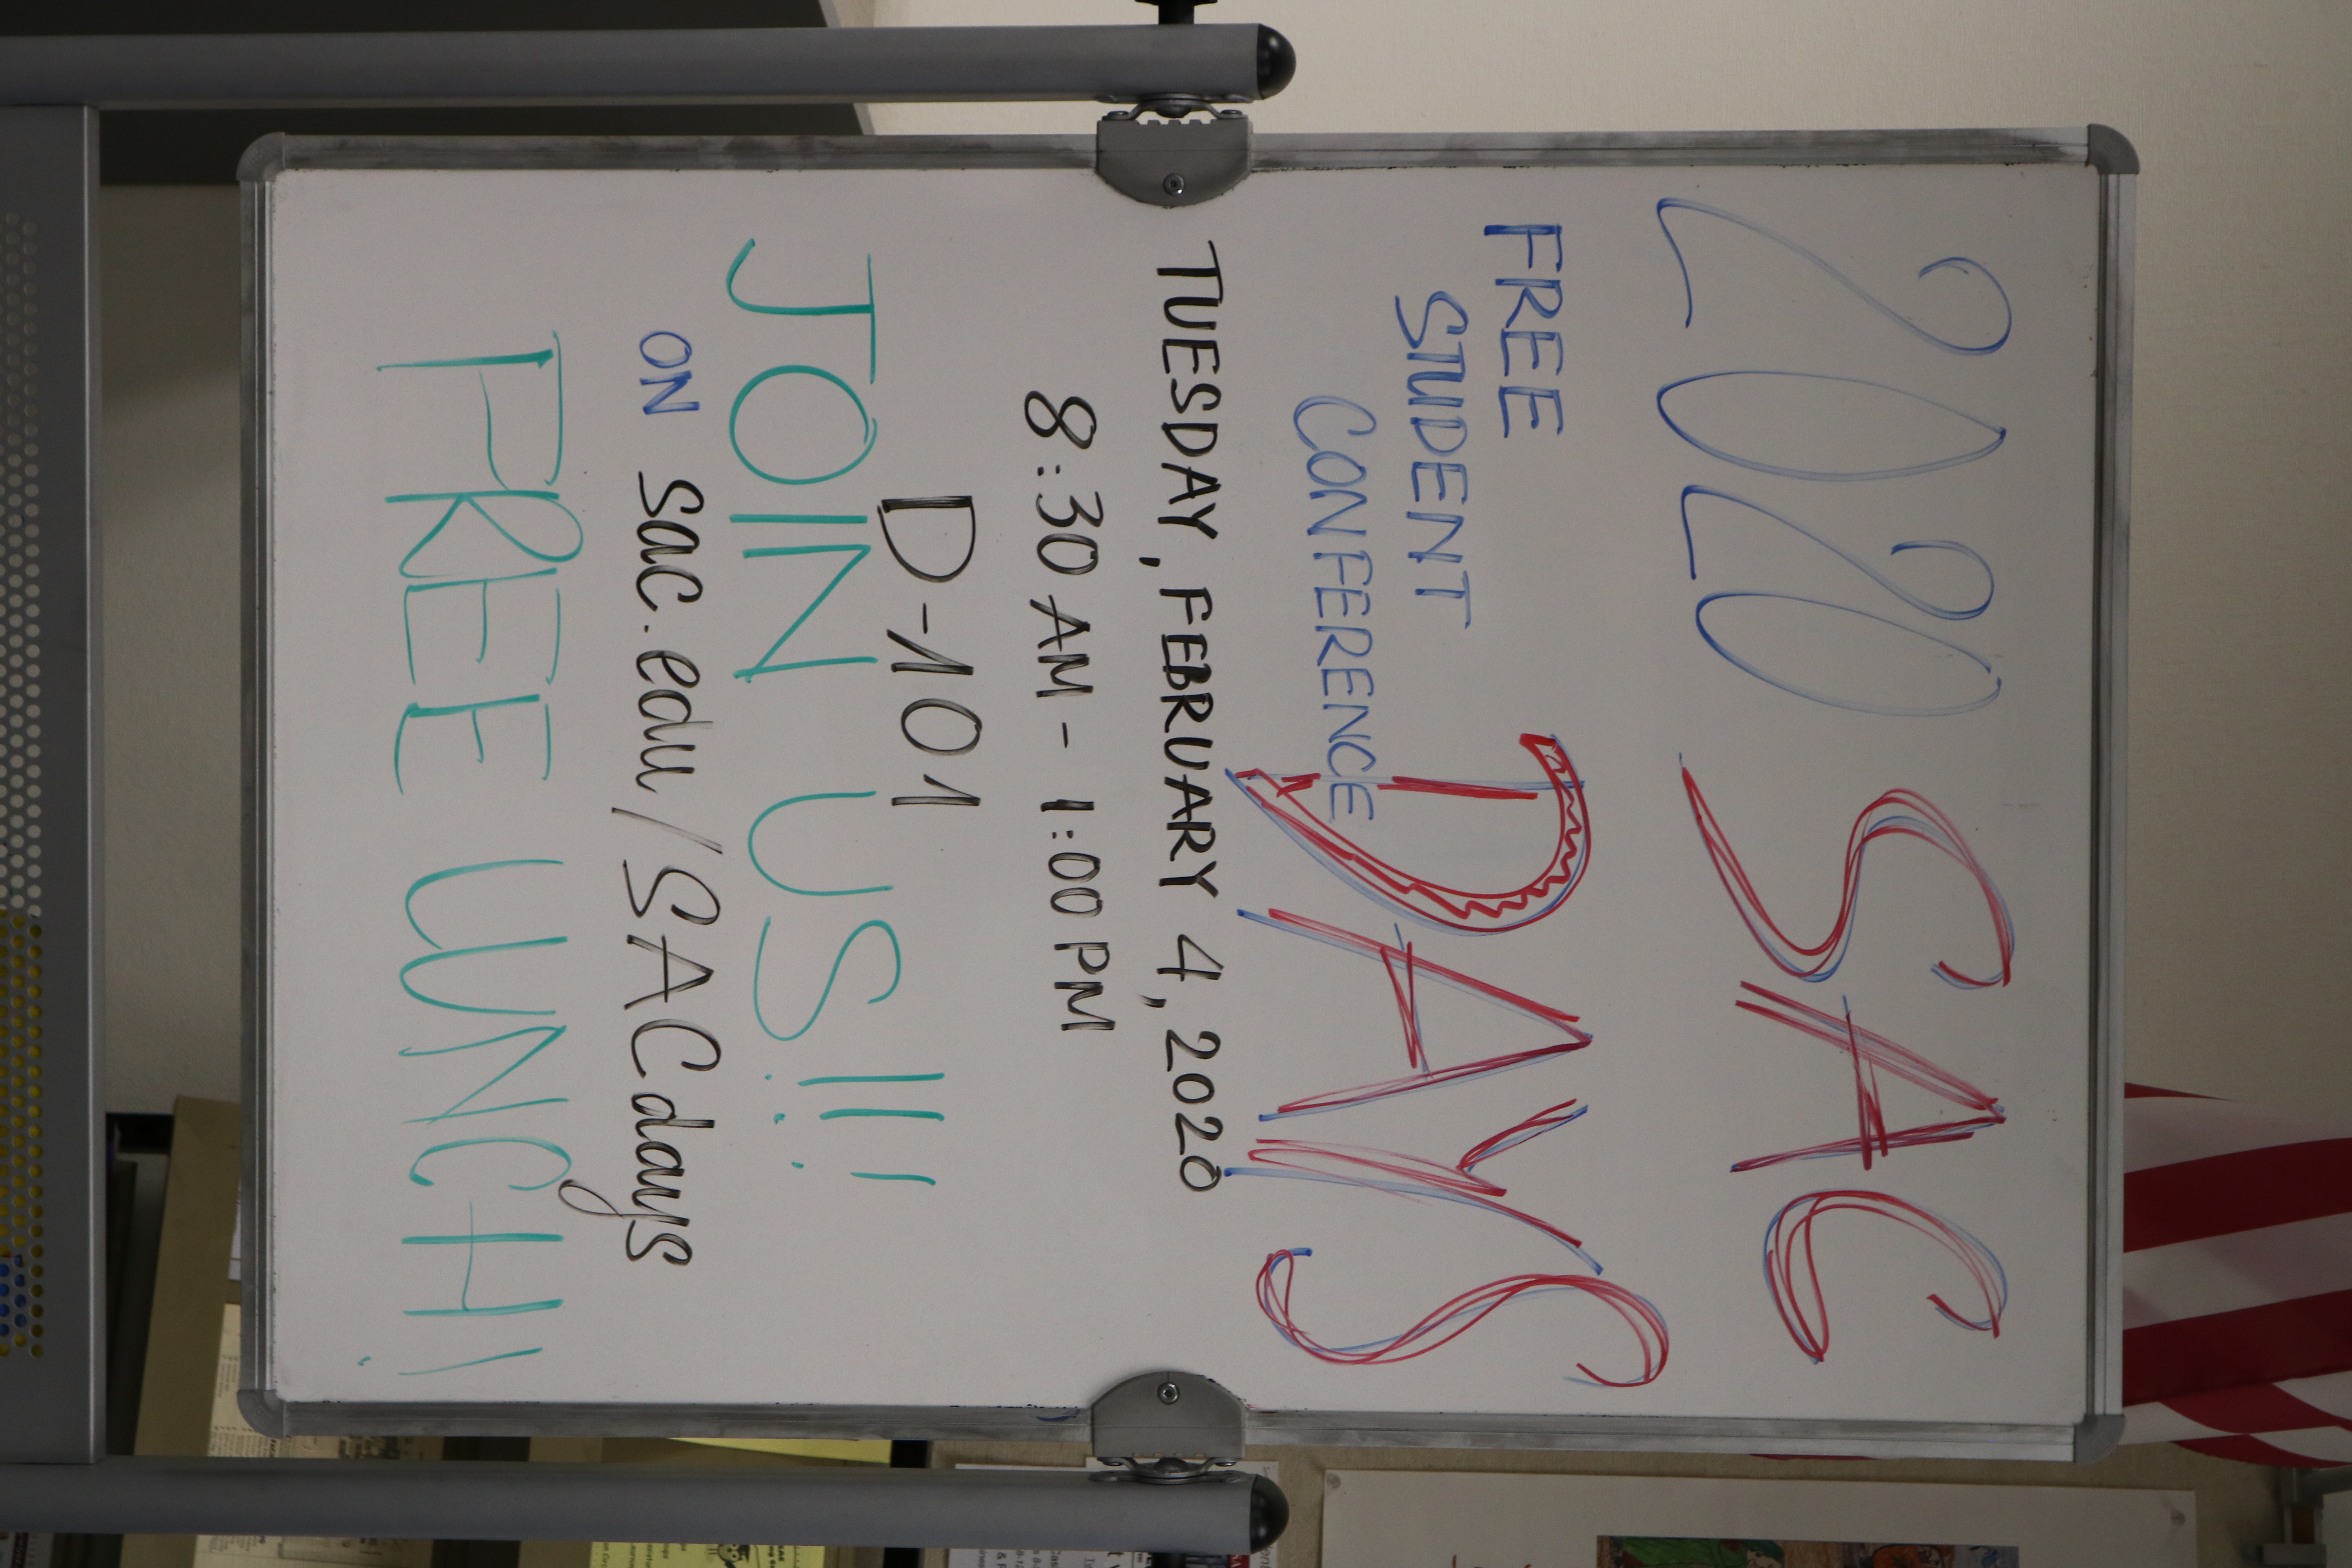 2020 SAC
FREE
STUDENT
CONFERENCE
DAYS
TUESDAY, FEBRUARY 4, 2020
8:30 AM - 1:00 PM
D-101
JOIN US!!!
ON sac.edu/SACdays
FREE LUNCH!